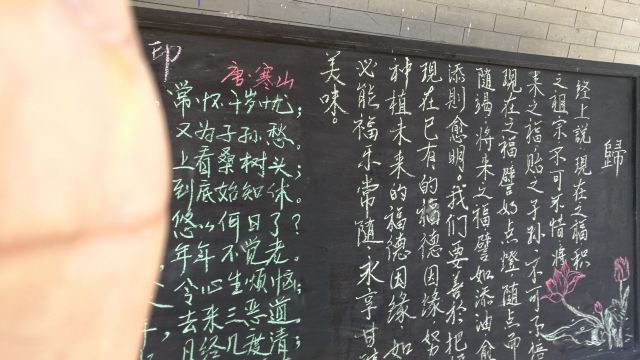 歸
終上說,現在之福積
之祖宗,不可不惜;將
来之福貽之子孫,不可不培
現在之福譬如点燈,随点而
随竭;将来之福譬如添油,愈
添則愈明。我们要善於把
現在已有的福德因缘,努
种植未来的福德因缘,如
必能福乐常随,永享甘
美味。
印
唐·寒山
常怀千岁忧;
又为子孙愁。
上看桑树头;
到底始知休。
悠以何日了?
年年不觉老。
令心生烦恼;
去来三恶道
月经几度清